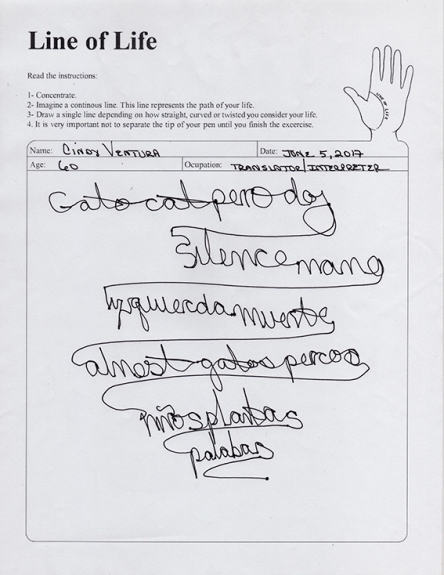 Line of Life
Read the instructions:
1- Concentrate.
2- Imagine a continous line. This line represents the path of your life.
3- Draw a single line depending on how straight, curved or twisted you consider your life.
4. It is very important not to separate the tip of your pen until you finish the excercise.
LINE OF LIFE
Name: CINDY VENTURA Date: JUNE 5, 2017
Age: 60 Ocupation: TRANSLATOR/INTERPRETER
Gato cat pero dog
silence mano
izquierda muerte
almost gatos perros
niños plantas
palabas